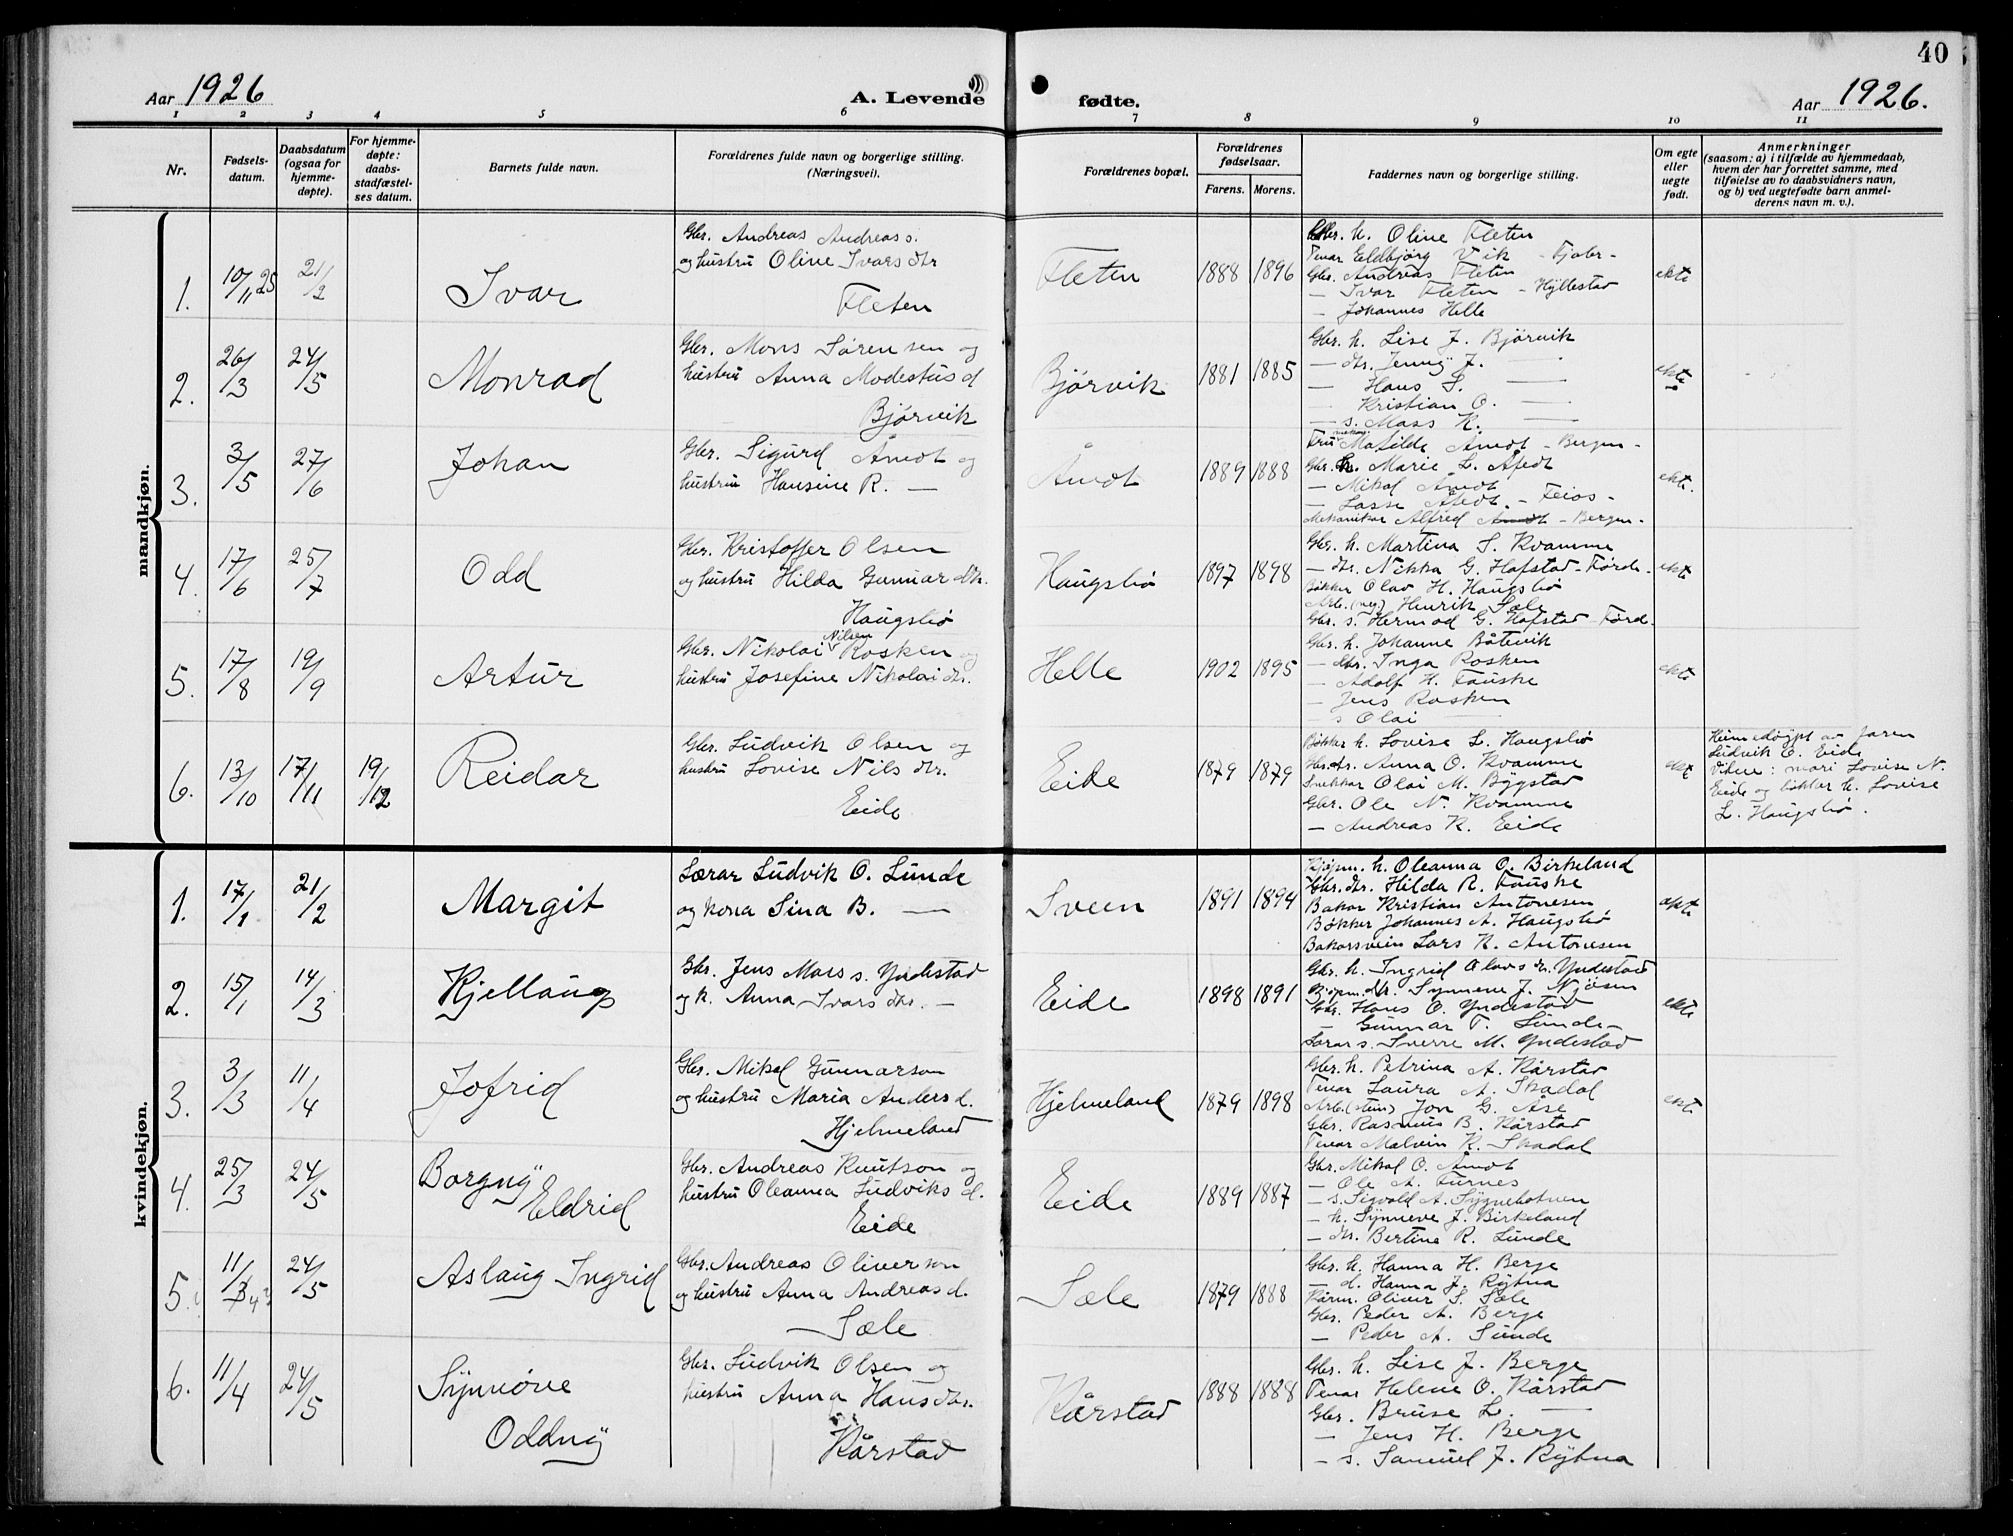 40
Aar 1926
A. Levende fødte.
Aar 1926.
1 2 3 4 5 6 7 8 9 10 11
Nr.
Fødsels-
datum.
Daabsdatum
(ogsaa for
hjemme-
døpte).
For hjemme-
døpte:
daabs-
stadfæstel-
ses datum.
Barnets fulde navn.
Forældrenes fulde navn og borgerlige stilling.
(Næringsvei).
Forældrenes bopæl.
Forældrenes
fødselsaar.
Farens. Morens.
Faddernes navn og borgerlige stilling.
Om egte
eller
uegte
født.
Anmerkninger
(saasom: a) i tilfælde av hjemmedaab,
hvem der har forrettet samme, med
tilføielse av to daabsvidners navn,
og b) ved uegtefødte barn anmel-
derens navn m. v.).
mandkjøn.
1. 10/11 25 21/2 Ivar
Gbr. Andreas Andreas s.
og hustru Oline Ivars dtr
Fleten
Fleten 1888 1896
Gbr. h. Oline Fleten
Tenar Eldbjørg Vik - Fjaler -
Gbr. Andreas Fleten
— Ivar Fleten - Hyllestad
— Johannes Helle
ekte
2. 26/3 24/5 Monrad
Gbr. Mons Sørensen og
hustru Anna Modestus d
Bjørvik
Bjørvik 1881 1885
Gbr. h. Lise J. Bjørvik
— dtr. Jenny J.
— Hans S. —
— Kristian O. —
— s. Mass K.
ekte
3. 3/5 27/6 Johan
Gbr. Sigurd Åmot og
hustru Hansine R. —
Åmot 1889 1888
Fru Matilde Åmot - Bergen -
Gbr. h. Marie L. Afedt
— Mikal Åmot
— Lasse Afedt - Feios -
Mekanikar Alfred Åmot - Bergen -
ekte.
4. 17/6 25/7 Odd
Gbr. Kristoffer Olsen
og hustru Hilda Gunnar dtr.
Haugsbø
Haugsbø 1897 1898
Gbr. h. Martina S. Kvamme
— dtr. Nikka G. Hafstad - Førde -
Bøkker Olav H. Haugsbø
Arb. (veg) Henrik Sæle
Gbr. s. Hermod G. Hafstad - Førd.
ekte
5. 17/8 19/9 Artur
Gbr. Nikolai Nilsen Rosken og
hustru Josefine Nikolai dtr.
Helle 1902 1895
Gbr. h. Johanne Båtevik
— dtr. Inga Rosken
— Adolf H. Fauske
— Jens Rosken
— s Olai —
ekte
6. 13/10 17/11 19/12 Reidar
Gbr. Ludvik Olsen og
hustru Lovise Nils dtr.
Eide
Eide 1879 1879
Bøkker h. Lovise L. Haugsbø
Gbr. dtr. Anna O. Kvamme
Snekkar Olai M. Bygstad
Gbr. Ole N. Kvamme
— Andreas K. Eide
ekte
Heimedøypt av faren
Ludvik O. Eide
Vitne: mori Lovise N.
Eide og bøkker h. Lovise
L. Haugsbø.
kvindekjøn.
1. 17/1 21/2 Margit
Lærar Ludvik O. Sunde
og kona Sina B. —
Sveen 1891 1894
Kjøpm. h. Oleanna O. Birkeland
Gbr. dtr. Hilda R. Fauske
Bakar Kristian Antonesen
Bøkker Johannes A. Haugsbø
Bakarsvein Lars K. Antonesen
ekte
2. 15/1 14/3 Kjellaug
Gbr. Jens Mass s. Yndestad
og k. Anna Ivars dtr. —
Eide 1898 1891
Gbr. h. Ingrid Olavs dr. Yndestad
Kjøpm. dtr. Synneve J. Njøsen
Gbr. Hans O. Yndestad
— Gunnar T. Sunde -
Lærar s. Sverre M. Yndestad
ekte
3. 3/3 11/4 Jofrid
Gbr. Mikal Gunnarson
og hustru Maria Anders d.
Hjelmeland
Hjelmeland 1879 1898
Gbr. h. Petrina A. Kårstad
Tenar Laura A. Skadal
Arb. (stein) Jon G. Åse
Gbr. Rasmus B. Kårstad
Tenar Malvin K. Skadal
ekte
4. 25/3 24/5 Borgny Eldrid
Gbr. Andreas Knutson og
hustru Oleanna Ludviks d.
Eide
Eide 1889 1887
Gbr. Mikal O. Åmot
— Ole A. Furnes
— s. Sigvald A. Sygnebotnen
— h. Synneve J. Birkeland
— dtr. Bertine R. Sunde
5. 11/3 24/5 Aslaug Ingrid
Gbr. Andreas Oliverson
og hustru Anna Andreas d.
Sæle
Sæle 1879 1888
Gbr. h. Hanna H. Berge
— d. Hanna J. Rytna
Kårm. Oliver S. Sæle
Gbr. Peder A. Berge
— Peder A. Sunde
6. 11/4 24/5 Synnøve
Oddny
Gbr. Ludvik Olsen og
hustru Anna Hans dtr.
Kårstad
Kårstad 1888 1888
Gbr. h. Lise J. Berge
Tenar Helene O. Kårstad
Gbr. Bruse L. —
— Jens H. Berge
— s. Samuel J. Rytna